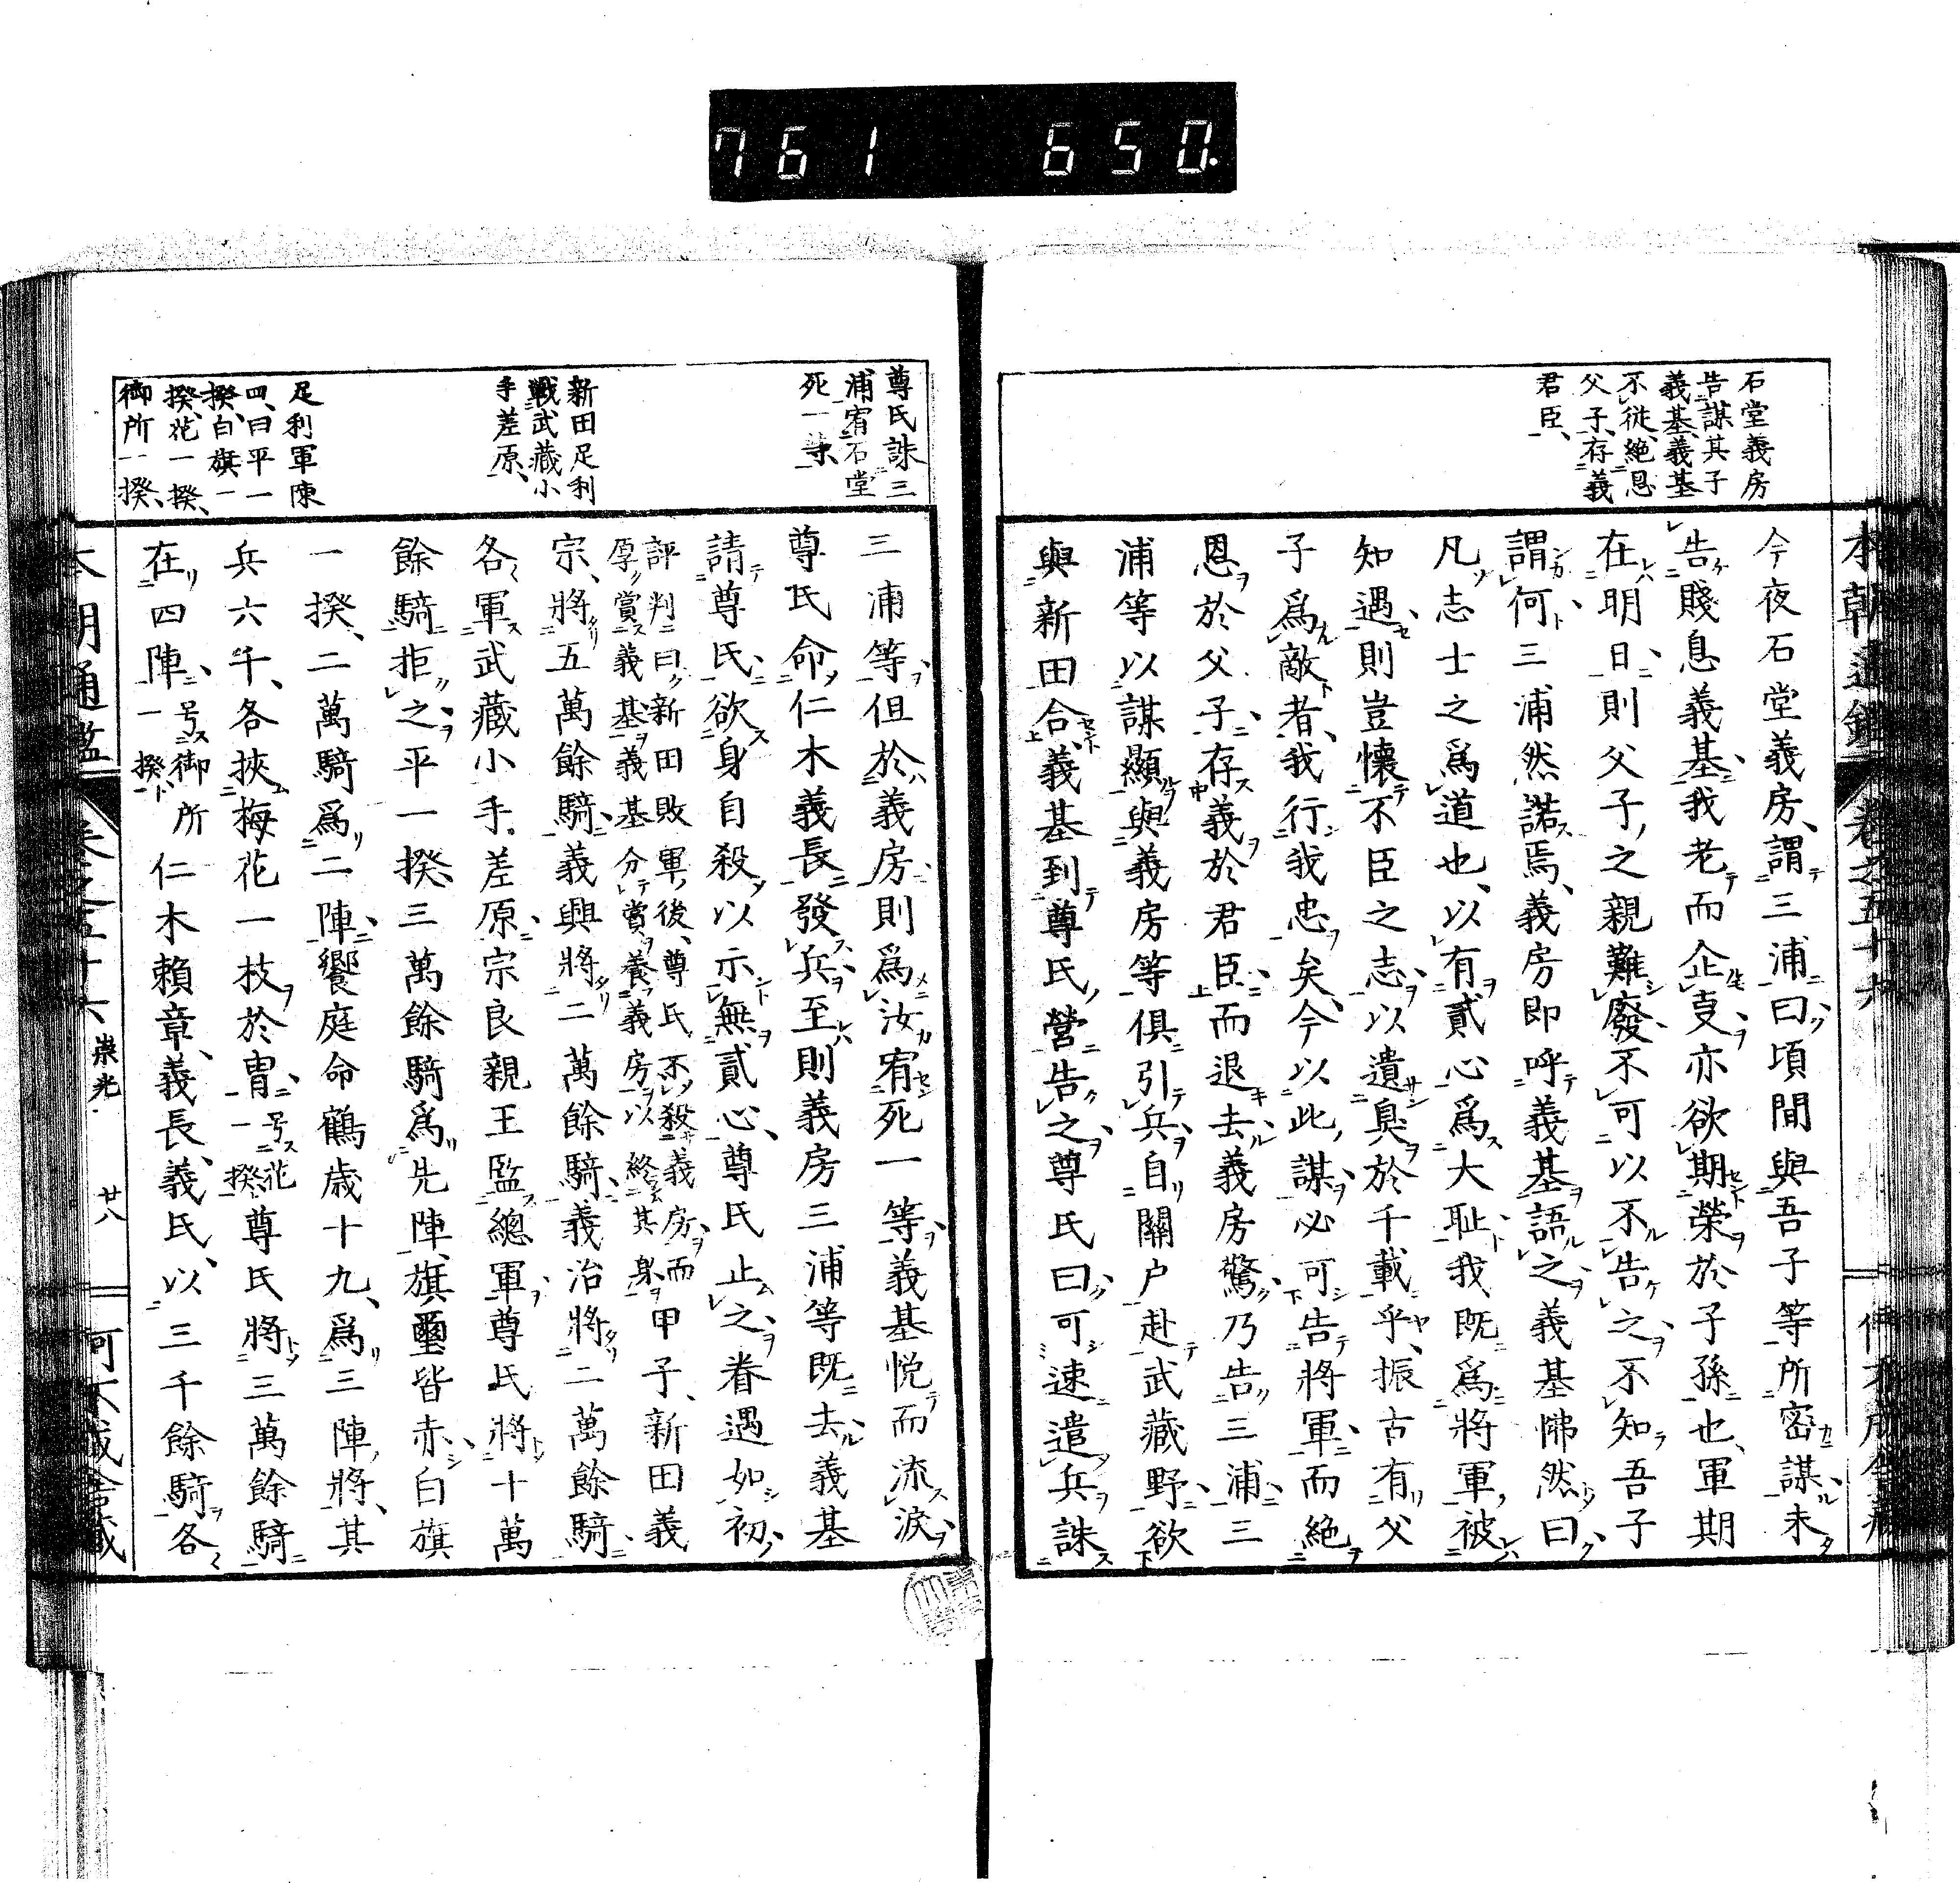 761 650.
石堂義房
告謀其子
義基義基
不従絶恩
父子存義
君臣、
今夜石堂義房、謂三浦曰頃間與吾子等所密謀未
告賤息義基我老而企叓亦欲期榮於子孫也、軍期
在明日則父子之親難廢不可以不告之不知吾子
謂何三浦然諾焉、義房即呼義基語之義基怫然曰
凡志士之爲道也、以有貳心爲大耻我既爲將軍被
知遇則豈懷不臣之志以遺臭於千載乎、振古有父
子爲敵者我行我忠矣今以此謀必可告將軍而絶
恩於父子存義於君臣而退去義房驚乃告三浦三
浦等以謀顯與義房等俱引兵自關戸赴武藏野欲
與新田合義基到尊氏營告之尊氏曰可速遣兵誅
尊氏誅三
浦宥石堂
死一等
新田足利
戰武藏小
手差原、
足利軍陳
四、曰平一
揆、白旗一
揆、花一揆、
御所一揆、
三浦等但於義房則爲汝宥死一等義基悦而流淚
尊氏命仁木義長發兵至則義房三浦等既去義基
請尊氏欲身自殺以示無貳心、尊氏止之眷遇如初
評判曰新田敗軍後、尊氏不殺義房而
厚賞義基義基分賞養義房以終其身
甲子、新田義
宗、將五萬餘騎義興將二萬餘騎義治將二萬餘騎
各軍武藏小手差原宗良親王監總軍尊氏將十萬
餘騎拒之平一揆三萬餘騎爲先陣旗璽皆赤白旗
一揆、二萬騎爲二陣饗庭命鶴歳十九、爲三陣將、其
兵六千、各挾梅花一枝於冑号花一揆尊氏將三萬餘騎
在四陣号御所一揆仁木賴章、義長、義氏、以三千餘騎各
本朝通鑑
卷之五十六
崇光
廿八